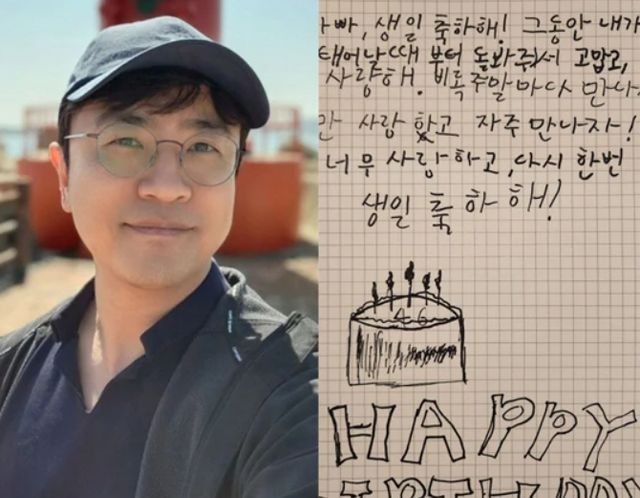 아빠, 생일 축하해! 그동안 내가
태어날때 부터 돌봐줘서 고맙고,
사랑해. 비록 주말마다 만나
만 사랑 하고 자주 만나자!
너무 사랑하고, 다시 한번
생일 축하해!
46
HAPPY
BIRTHDAY